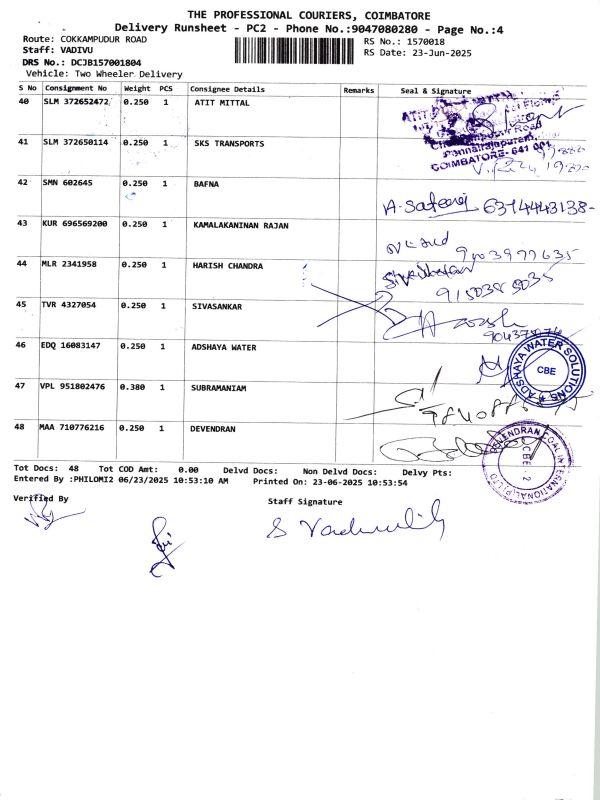 THE PROFESSIONAL COURIERS, COIMBATORE
Delivery Runsheet - PC2 - Phone No.:9047080280 - Page No.:4
Route: COKKAMPUDUR ROAD RS No.: 1570018
Staff: VADIVU RS Date: 23-Jun-2025
DRS No.: DCJB157001804
Vehicle: Two Wheeler Delivery
S No Consignment No Weight PCS Consignee Details Remarks Seal & Signature
40 SLM 372652472 0.250 1 ATIT MITTAL
41 SLM 372650114 0.250 1 SKS TRANSPORTS
COIMBATORE- 641 001
42 SMN 602645 0.250 1 BAFNA
6374443138-
43 KUR 696569200 0.250 1 KAMALAKANINAN RAJAN
9003977635
44 MLR 2341958 0.250 1 HARISH CHANDRA
45 TVR 4327054 0.250 1 SIVASANKAR
46 EDQ 16083147 0.250 1 ADSHAYA WATER
ADSHAYA WATER SOLUTIONS
CBE
47 VPL 951802476 0.380 1 SUBRAMANIAM
48 MAA 710776216 0.250 1 DEVENDRAN
Tot Docs: 48 Tot COD Amt: 0.00 Delvd Docs: Non Delvd Docs: Delvy Pts:
Entered By :PHILOMI2 06/23/2025 10:53:10 AM Printed On: 23-06-2025 10:53:54
Verified By Staff Signature